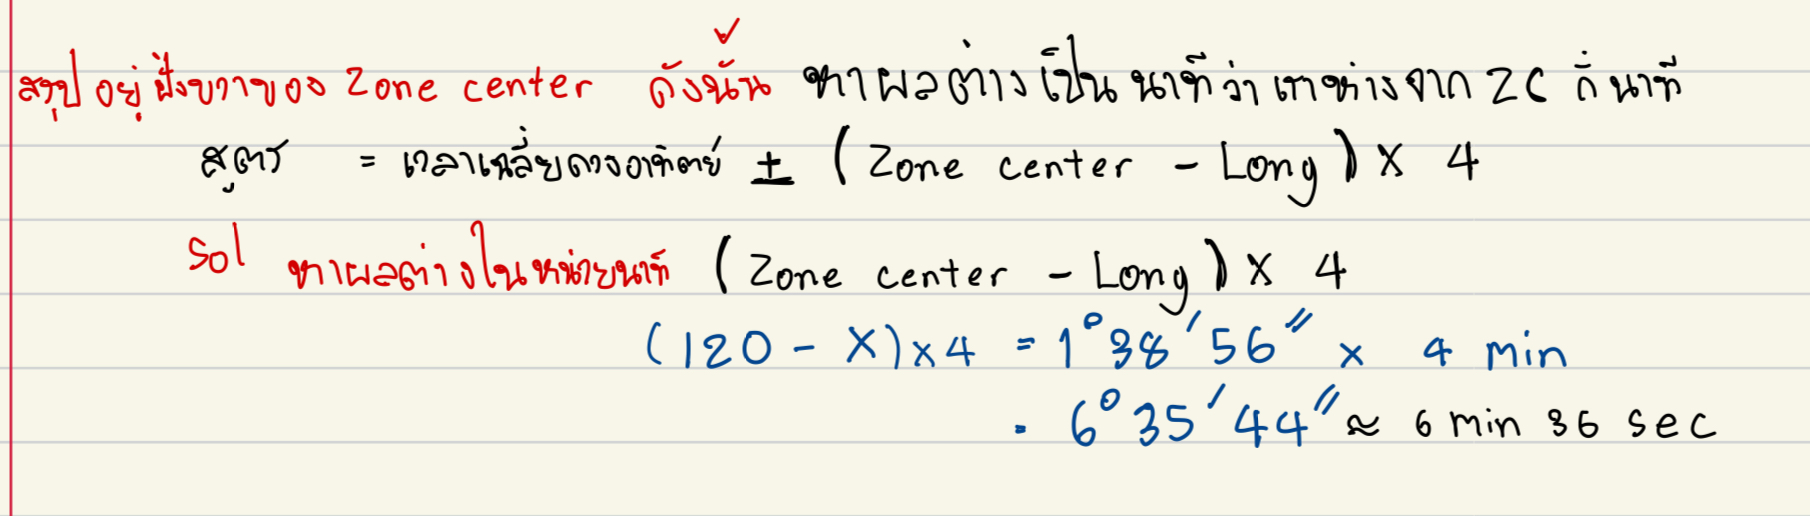 สรุป อยู่ ฝั่งขวาของ Zone center ดังนั้น หาผลต่างเป็นนาทีว่าเราห่างจาก ZC กี่นาที
สูตร = เวลาเฉลี่ยดวงอาทิตย์ ± (Zone center - Long) x 4
Sol หาผลต่างในหน่วยนาที (Zone center - Long) x 4
(120 - X) x 4 = 1° 38' 56" x 4 min
= 6° 35' 44" ≈ 6 min 36 sec